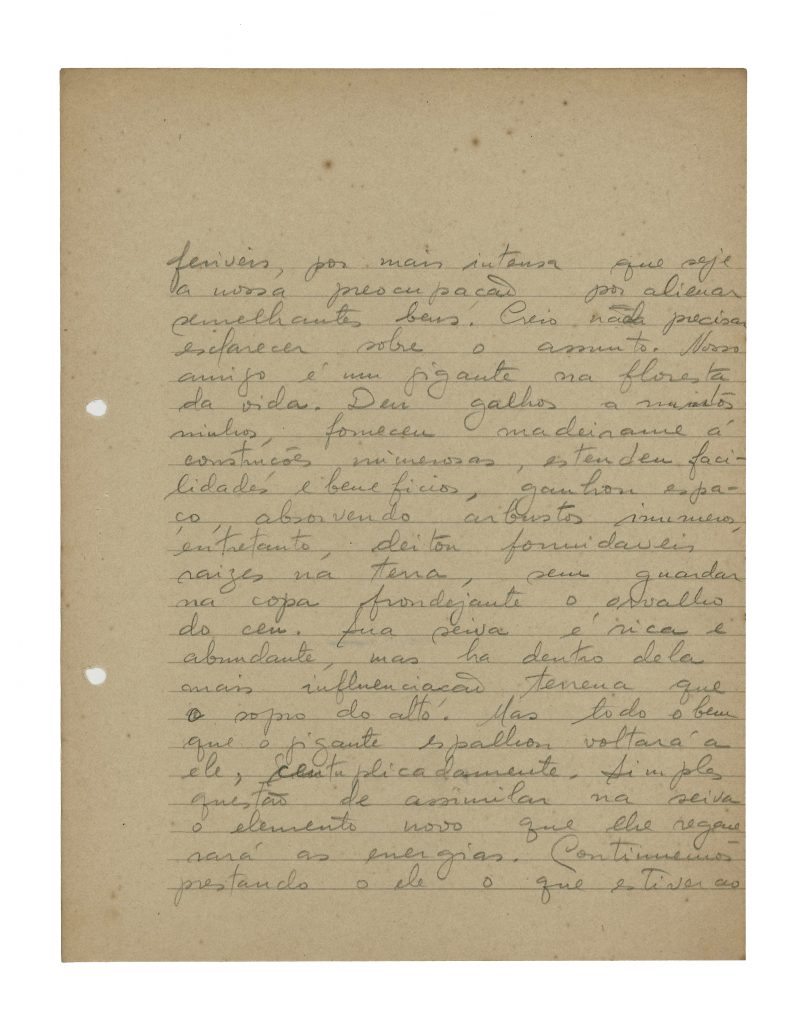 feriveis, por mais intensa que seje
a nossa preocupação por alienar
semelhantes bens. Creio nada precisar
esclarecer sobre o assunto. Nosso
amigo é um gigante na floresta
da vida. Deu galhos a muitos
ninhos, forneceu madeirame á
construcões numerosas, estendeu faci-
lidades e beneficios, ganhou espa-
ço, absorvendo arbustos inumeros,
entretanto, deitou formidaveis
raizes na terra, sem guardar
na copa frondejante o orvalho
do ceu. Sua seiva é rica e
abundante, mas ha dentro dela
mais influenciacão terrena que
o sopro do alto. Mas todo o bem
que o gigante espalhou voltará a
ele, centuplicadamente. Simples
questão de assimilar na seiva
o elemento novo que lhe regene
rará as energias. Continuemos
prestando o ele o que estiver ao